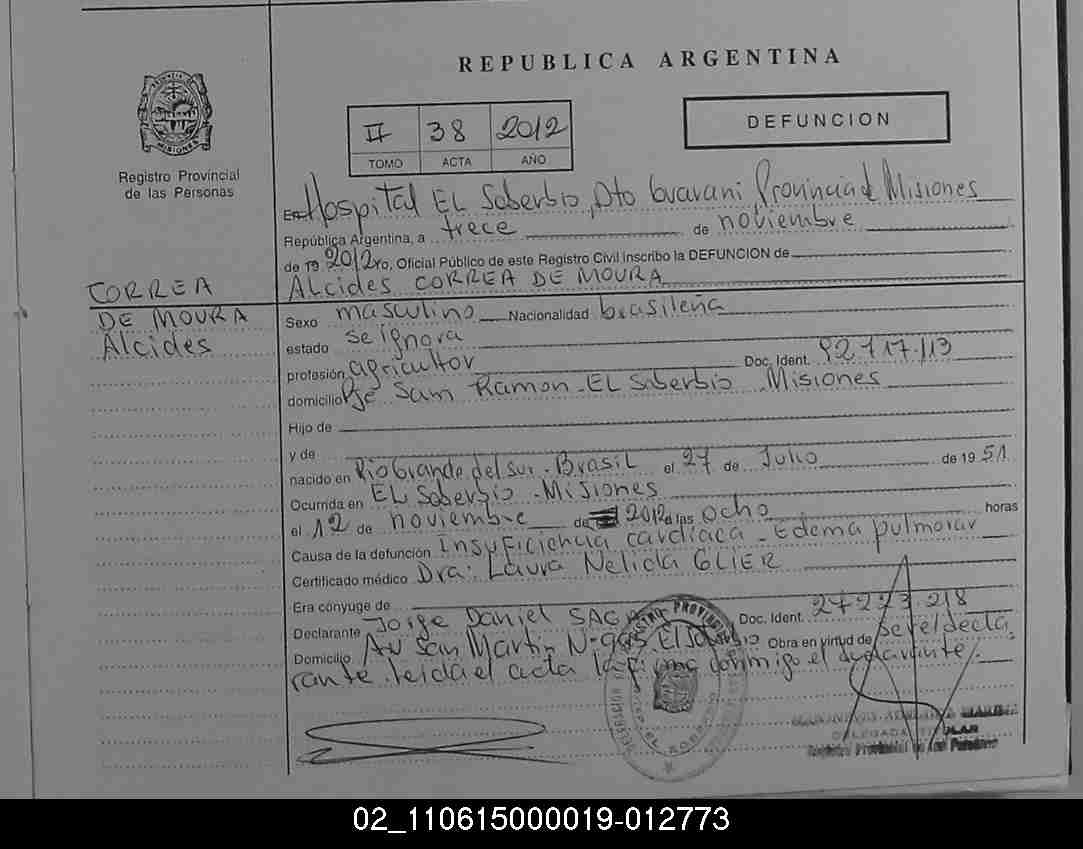 REPUBLICA ARGENTINA
PROVINCIA DE
MISIONES
Registro Provincial
de las Personas
II 38 2012
TOMO ACTA AÑO
DEFUNCION
En Hospital EL Soberbio, Dto Guarani Provincia de Misiones
República Argentina, a trece de noviembre
de 19 2012 ro, Oficial Público de este Registro Civil inscribo la DEFUNCION de
Alcides CORREA DE MOURA
CORREA
DE MOURA
Alcides
Sexo masculino Nacionalidad brasileña
estado se ignora
profesión agricultor Doc. Ident. 92717.113
domicilio Pje San Ramon - EL Soberbio Misiones
Hijo de
y de
nacido en Rio Grande del sur - Brasil el 27 de Julio de 19 51
Ocurrida en EL Soberbio - Misiones
el 12 de noviembre de 2012 a las ocho horas
Causa de la defunción Insuficiencia cardíaca - Edema pulmonar
Certificado médico Dra: Laura Nelida GLIER
Era cónyuge de
Declarante Jorge Daniel Doc. Ident. 27223.218
Domicilio Av San Martin El Soberbio Obra en virtud de ser el decla
rante. leida el acta la firma conmigo el declarante.
REGISTRO PROVINCIAL
DELEGADA TITULAR
Registro Provincial de las Personas
02_110615000019-012773